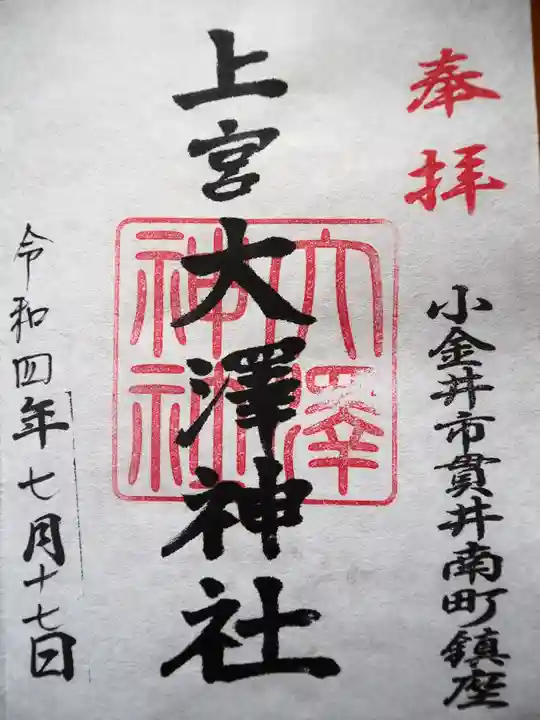 奉拝
小金井市貫井南町鎮座
上宮大澤神社
大澤
神社
令和四年七月十七日